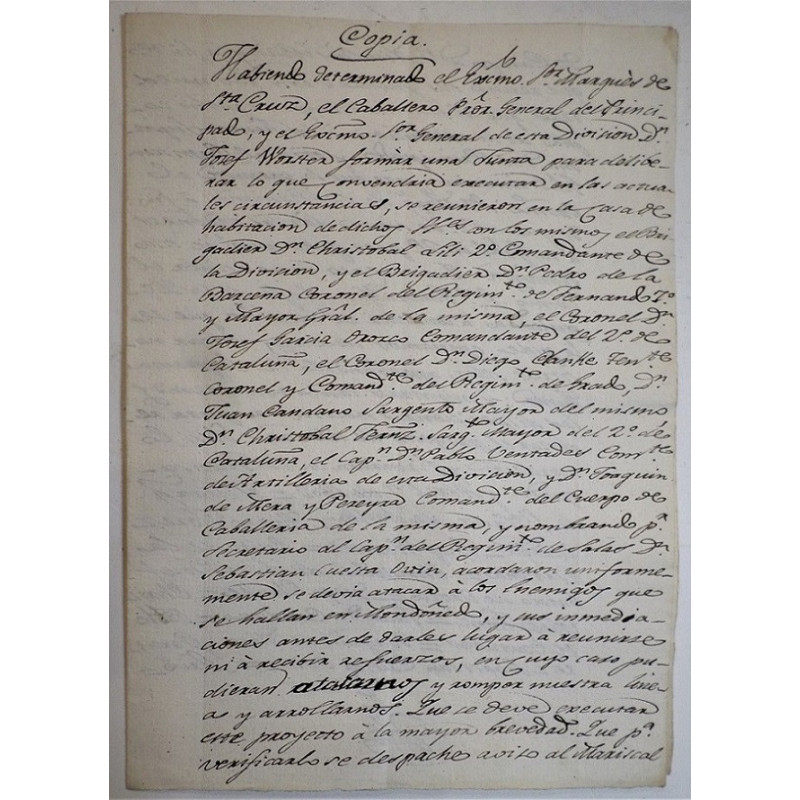 Copia.
Habiendo determinado el Exc̃mo. S.ᵒʳ Marquès de
S.ᵗᵃ Cruz, el Caballero Pror. General del Princi-
pado, y el Excm̃o. S.ᵒʳ General de esta Division D.ⁿ
Josef Worster formàr una Junta para delibe-
rar lo que convendria executar en las actua-
les circunstancias, se reunieron en la Casa de
habitacion de dichos S.ʳᵉˢ con los mismos el Bri-
gadier D.ⁿ Christobal Lili 2.º Comandante de
la Division, y el Brigadier D.ⁿ Pedro de la
Barcena Coronel del Regim.ᵗᵒ de Fernando 7.º
y Mayor Grãl. de la misma, el Coronel D.ⁿ
Josef Garcia Orozco Comandante del 2.º de
Cataluña, el Coronel D.ⁿ Diego Clarke Ten.ᵗᵉ
Coronel y Comand.ᵗᵉ del Regim.ᵗᵒ de Grado, D.ⁿ
Juan Candano Sargento Mayor del mismo
D.ⁿ Christobal Fernz. Sarg.ᵗᵒ Mayor del 2.º de
Cataluña, el Cap.ⁿ D.ⁿ Pablo Ventades Com.ᵗᵉ
de Artilleria de esta Division, y D.ⁿ Joaquin
de Mera y Pereyra Comand.ᵗᵉ del Cuerpo de
Caballeria de la misma, y nombrando p.ᵃ
Secretario al Cap.ⁿ del Regim.ᵗᵒ de Salas D.ⁿ
Sebastian Cuesta, acordaron uniforme-
mente se devia atacar à los Enemigos que
se hallan en Mondoñedo, y sus inmedia-
ciones antes de darles lugar à reunirse
ni à recibir refuerzos, en cuyo caso pu-
dieran atacarnos y romper nuestra line-
a y arrollarnos. Que se deve executar
este proyecto à la mayor brevedad. Que p.ᵃ
verificarlo se despache aviso al Mariscal